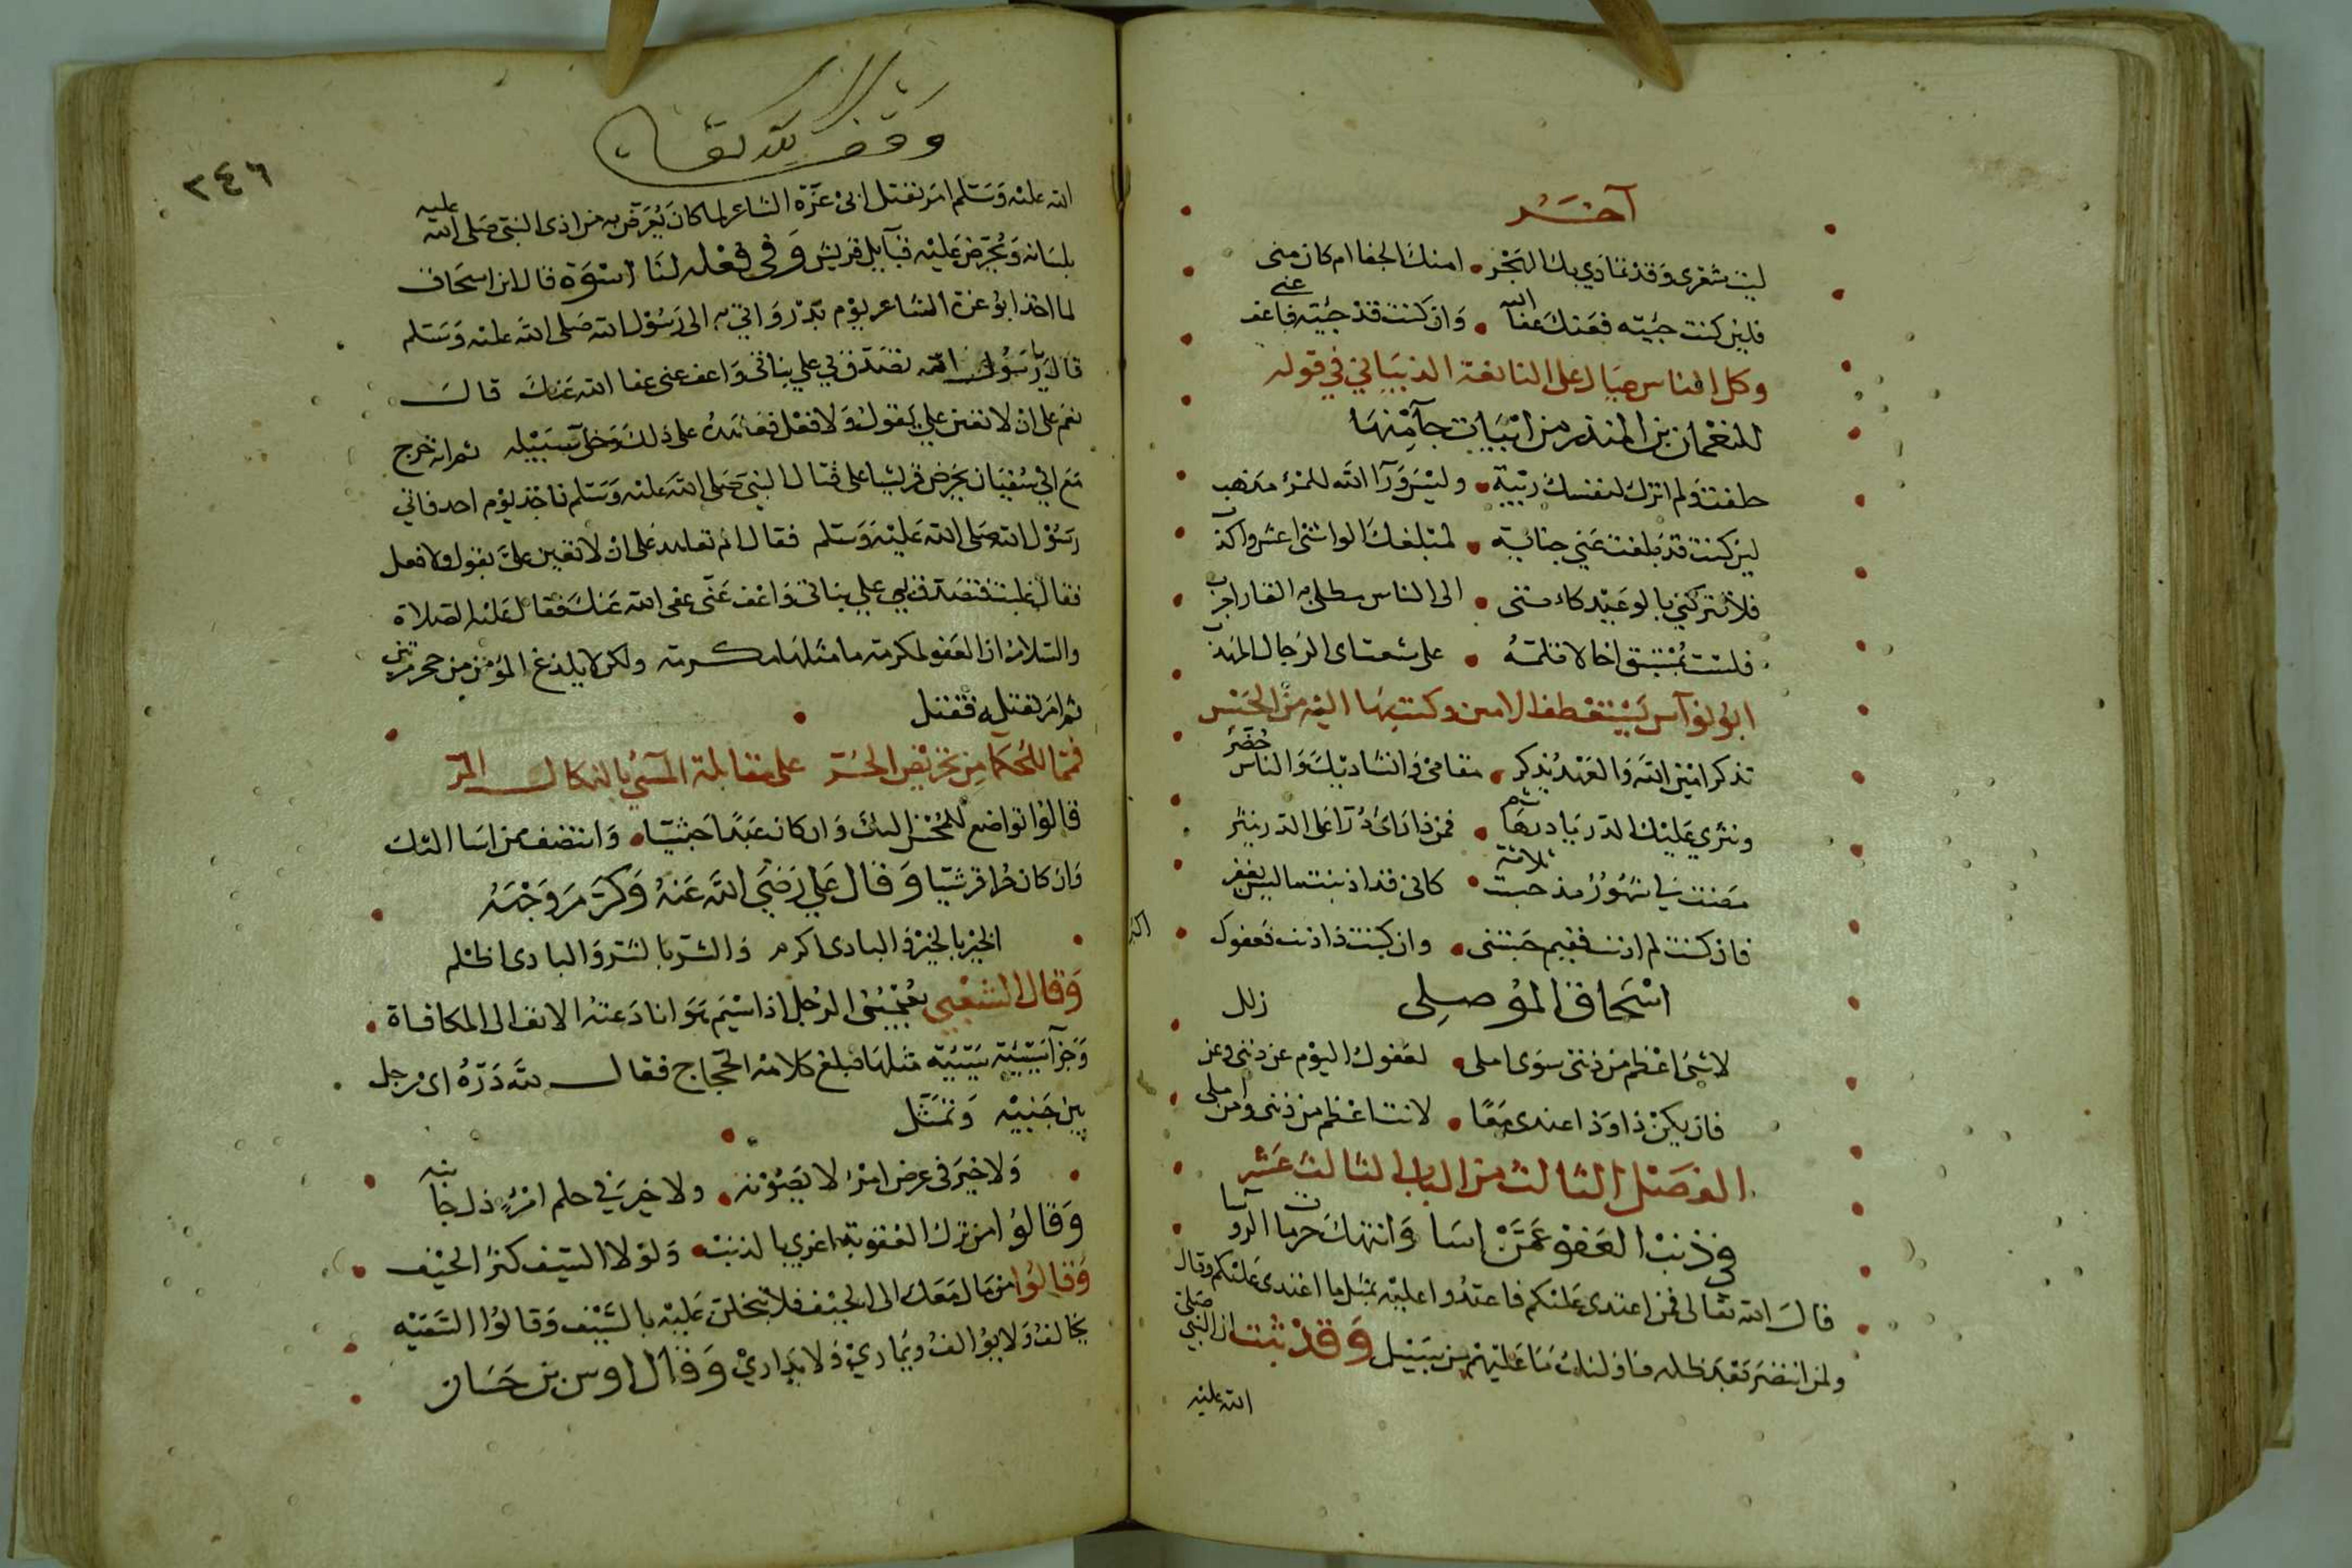 آخر
ليت شعرى وقد تمادي بك الهجر • امنك الجفا ام كان منى
فلين كنت جيته فعنك عفا الله • وان كنت قد جيته فاعف عنى
وكل الناس عيال على النابغة الذبياني في قوله
للنعمان بن المنذر من ابيات جآ منها
حلفت ولم اترك لنفسك ريبة • وليس ورآ الله للمرء مذهب
لين كنت قد بلغت عني جناية • لمبلغك الواشى اغش واكذب
فلا تتركني بالوعيد كاننى • الى الناس مطلى به القار اجرب
فلست بمستبق اخا لا تلمه • على شعث اى الرجال المهذب
ابو نوآس يستعطف الامين وكتب بها اليه من الحبس
تذكر امين الله والعهد يذكر • مقامى وانشاديك والناس حضر
ونثري عليك الدر يا در هاشم • فمن ذا راى درا على الدر ينثر
مضت لي شهور مذ حبست ثلاثة • كانى قد اذنبت ما ليس يغفر
فان كنت لم اذنب ففيم حبستنى • وان كنت ذا ذنب فعفوك اكبر
اسحاق الموصلى زلل
لا شى اعظم من ذنبى سوى املى • لعفوك اليوم عن ذنبى وعن زللى
فان يكن ذا وذا عندى معا • لانت اعظم من ذنبى ومن املى
الفصل الثالث من الباب الثالث عشر
في ذنب العفو عمن اسا وانتهك حرمات الروسا
قال الله تعالى فمن اعتدى عليكم فاعتدوا عليه بمثل ما اعتدى عليكم وقال
ولمن انتصر بعد ظلمه فاوليك ما عليهم من سبيل وقد ثبت ان النبي صلى
الله عليه
وقف لله تعالى
٢٤٦
الله عليه وسلم امر بقتل ابى عزة الشاعر لما كان يعرض به من اذى النبي صلى الله عليه
بلسانه ويحرض عليه قبآيل قريش وفي فعله لنا اسوة قال ابن اسحاق
لما اخذ ابو عزة الشاعر يوم بدر واتي به الى رسول الله صلى الله عليه وسلم
قال يا رسول الله تصدق بي علي بناتى واعف عنى عفا الله عنك قال
نعم على ان لا تعين علي بقول ولا فعل فعاهده على ذلك وخلى سبيله ثم انه خرج
مع ابي سفيان يحرض قريشا على قتال النبي صلى الله عليه وسلم فاخذ يوم احد فاتي
رسول الله صلى الله عليه وسلم فقال الم تعاهد على ان لا تعين علي بقول ولا فعل
فقال غلبت فتصدق بي علي بناتى واعف عنى عفى الله عنك فقال عليه الصلاة
والسلام ان العفو لمكرمة ما مثلها مكرمة ولكن لا يلدغ المؤمن من جحر مرتين
ثم امر بقتله فقتل
فمما للحكما من تحريض الحر على مقابلة المسيء بالنكال المر
قالوا تواضع للمحسن اليك وان كان عبدا حبشيا • وانتصف ممن اسا اليك
وان كان حرا قرشيا وقال علي رضي الله عنه وكرم وجهه
الخير بالخير والبادى اكرم والشر بالشر والبادى اظلم
وقال الشعبي يعجبنى الرجل اذا سيم هوانا دعته الانفة الى المكافاة •
وجزآ سيئة سيئة مثلها فبلغ كلامه الحجاج فقال لله دره اى رجل
بين جنبيه وتمثل
ولا خير فى عرض امرئ لا يصونه • ولا خير في حلم امرء ذل جانبه
وقالوا من ترك العقوبة اغري بالذنب • ولولا السيف كثر الحيف
وقالوا من مال معك الى الحيف فلا تبخلن عليه بالسيف وقالوا السفيه
يخالف ولا يوالف ويماري ولا يداري وقال اوس بن حسان